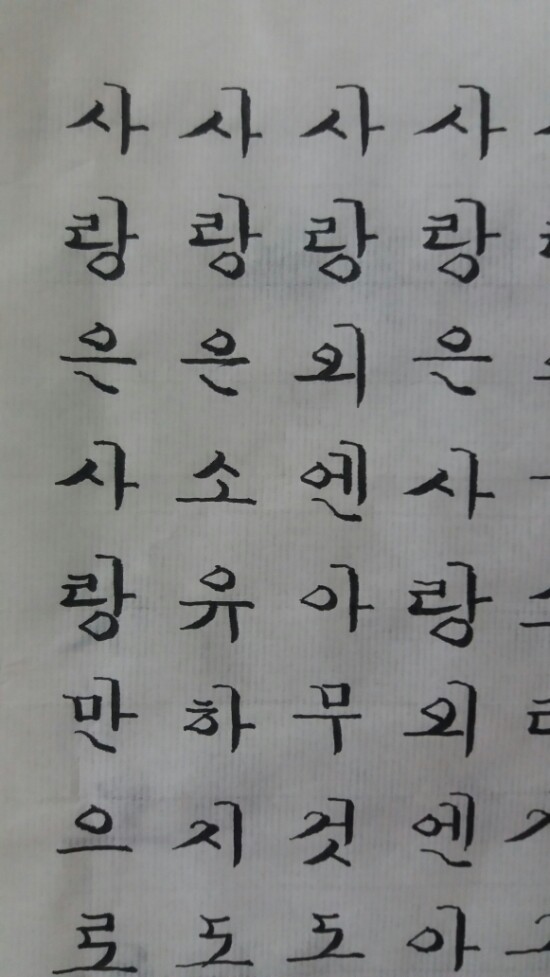 사랑은사랑외엔아
사랑외엔아무것도
사랑은소유하지도
사랑은사랑만으로